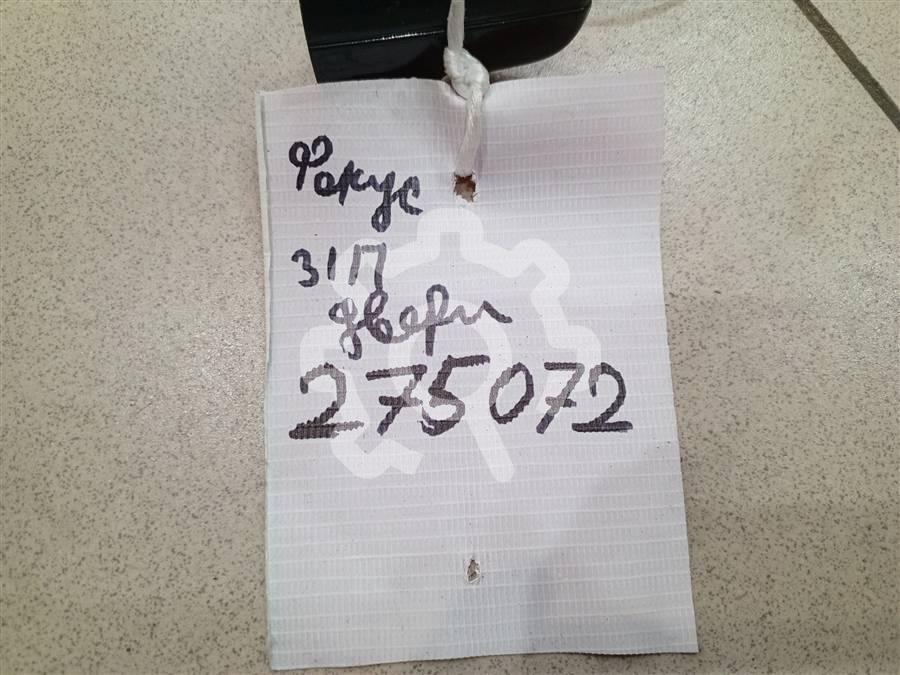 Фокус
З/П
двери
275072